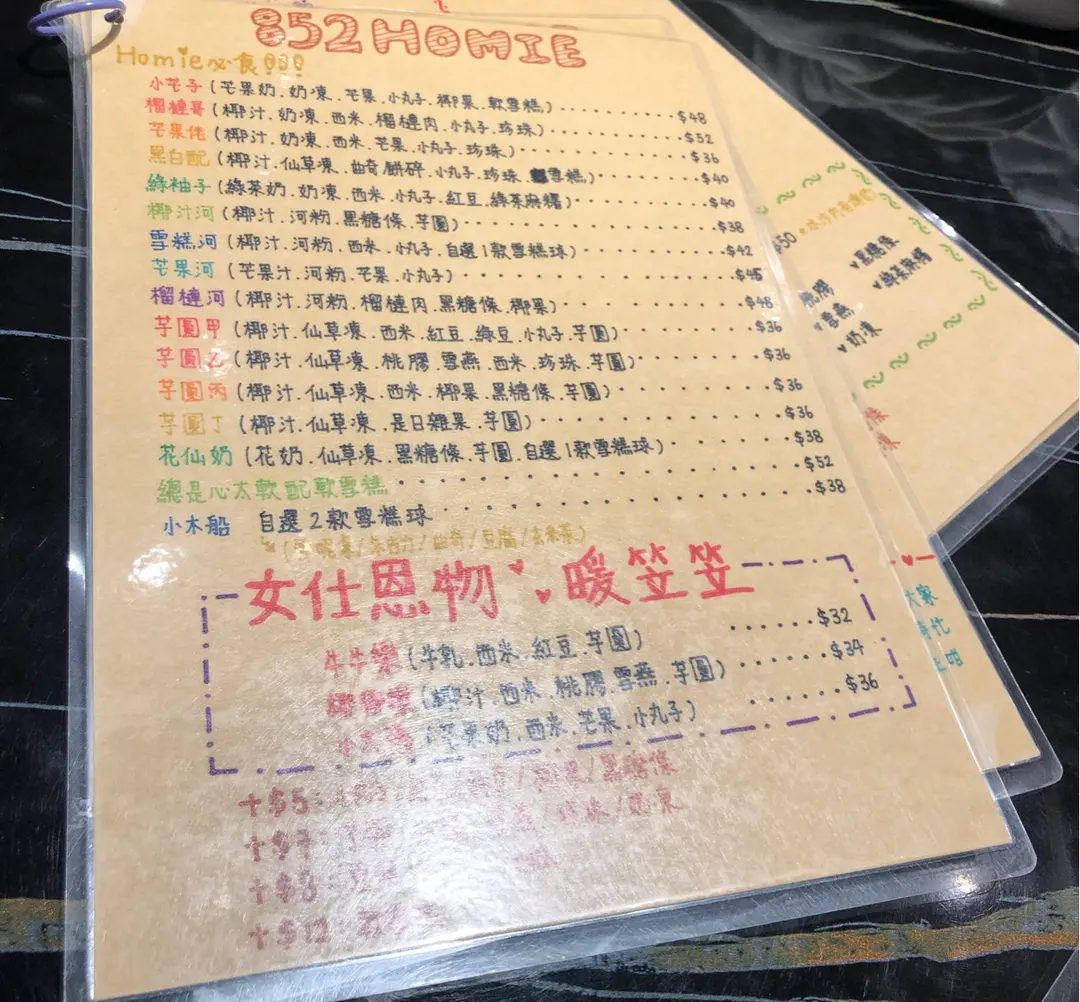 852 HOMIE
Homie必食!!!
小芒子 (芒果奶.奶凍.芒果.小丸子.椰果.軟雪糕) ............ $48
榴槤哥 (椰汁.奶凍.西米.榴槤肉.小丸子.珍珠) ............ $52
芒果佬 (椰汁.奶凍.西米.芒果.小丸子.珍珠) ............ $36
黑白配 (椰汁.仙草凍.曲奇餅碎.小丸子.珍珠.雪糕) ............ $40
綠柚子 (綠茶奶.奶凍.西米.小丸子.紅豆.綠茶麻糬) ............ $40
椰汁河 (椰汁.河粉.黑糖條.芋圓) ............ $38
雪糕河 (椰汁.河粉.西米.小丸子.自選1款雪糕球) ............ $42
芒果河 (芒果汁.河粉.芒果.小丸子) ............ $45
榴槤河 (椰汁.河粉.榴槤肉.黑糖條.椰果) ............ $48
芋圓甲 (椰汁.仙草凍.西米.紅豆.綠豆.小丸子.芋圓) ............ $36
芋圓乙 (椰汁.仙草凍.桃膠.雪燕.西米.珍珠.芋圓) ............ $36
芋圓丙 (椰汁.仙草凍.西米.椰果.黑糖條.芋圓) ............ $36
芋圓丁 (椰汁.仙草凍.是日雜果.芋圓) ............ $36
花仙奶 (花奶.仙草凍.黑糖條.芋圓.自選1款雪糕球) ............ $38
總是心太軟配軟雪糕 ............ $52
小木船 自選2款雪糕球 ............ $38
/朱古力/曲奇/豆腐/玄米茶)
女仕恩物♥♥暖笠笠
牛牛樂 (牛乳.西米.紅豆.芋圓) ...... $32
(椰汁.西米.桃膠.雪燕.芋圓) ...... $34
(芒果奶.西米.芒果.小丸子) ...... $36
+$5: /黑糖條
+$7:
+$8:
+$12:
$50
桃膠 ♥黑糖條
♥雪燕 ♥綠茶麻糬
♥奶凍
大家